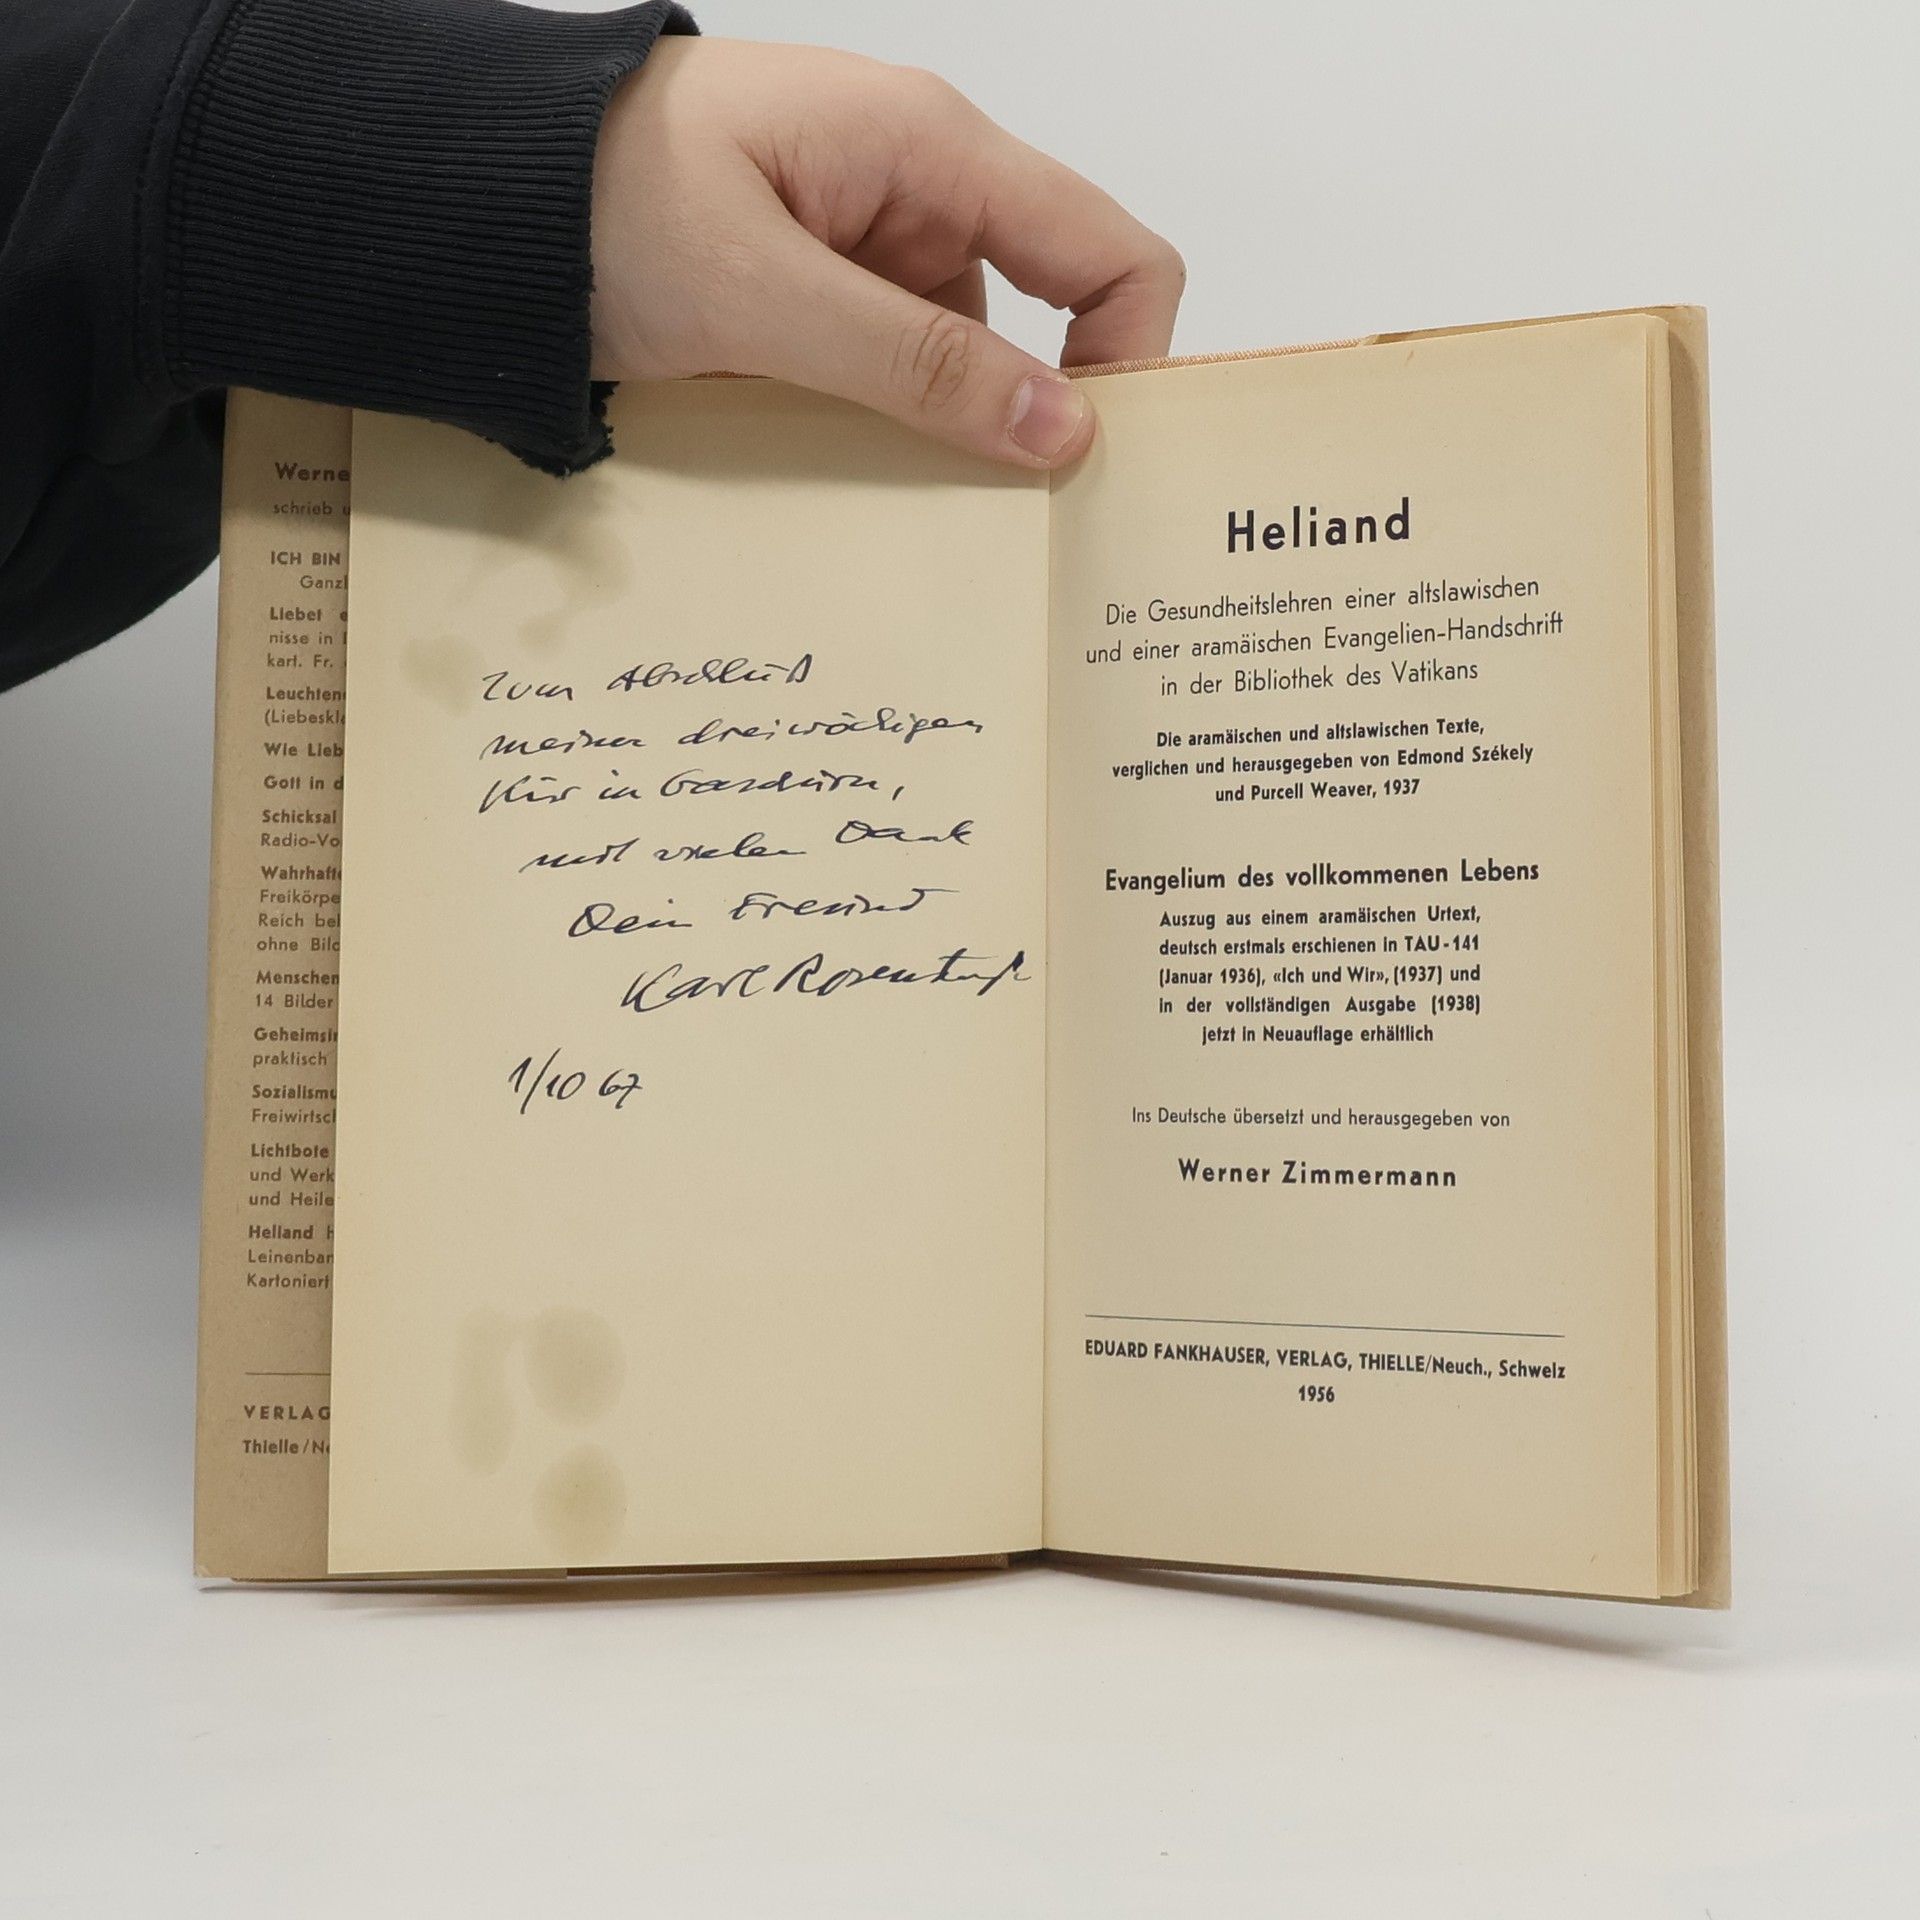 Werne
schrieb u
ICH BIN
Ganzl
Liebet e
nisse in
kart. Fr.
Leuchten
(Liebeskla
Wie Lieb
Gott in d
Schicksal
Radio-Vo
Wahrhafte
Freikörpe
Reich bel
ohne Bild
Menschen
14 Bilder
Geheimsin
praktisch
Sozialismu
Freiwirtsch
Lichtbote
und Werk
und Heile
Heliand H
Leinenban
Kartoniert
VERLAG
Thielle/Ne
Zum Abschluß
meiner dreiwöchigen
Kur in
mit vielen Dank
Dein Freund
Karl
1/10 67
Heliand
Die Gesundheitslehren einer altslawischen
und einer aramäischen Evangelien-Handschrift
in der Bibliothek des Vatikans
Die aramäischen und altslawischen Texte,
verglichen und herausgegeben von Edmond Székely
und Purcell Weaver, 1937
Evangelium des vollkommenen Lebens
Auszug aus einem aramäischen Urtext,
deutsch erstmals erschienen in TAU-141
(Januar 1936), «Ich und Wir», (1937) und
in der vollständigen Ausgabe (1938)
jetzt in Neuauflage erhältlich
Ins Deutsche übersetzt und herausgegeben von
Werner Zimmermann
EDUARD FANKHAUSER, VERLAG, THIELLE/Neuch., Schweiz
1956